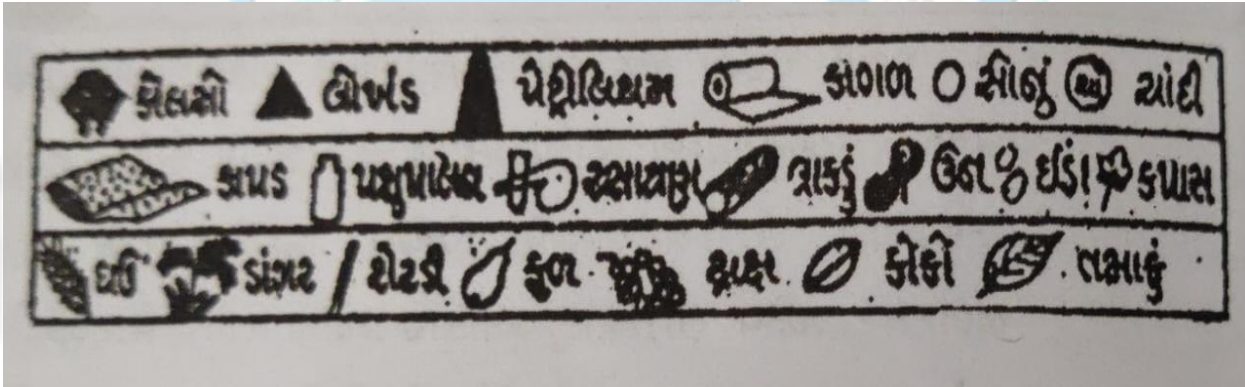 કોલસો લોખંડ પેટ્રોલિયમ કાગળ સોનું ચાંદી
કાપડ પશુપાલન રસાયણ લાકડું ઉન ઈંડા કપાસ
ઘઉં ડાંગર શેરડી ફળ દ્રાક્ષ કોકો તમાકું